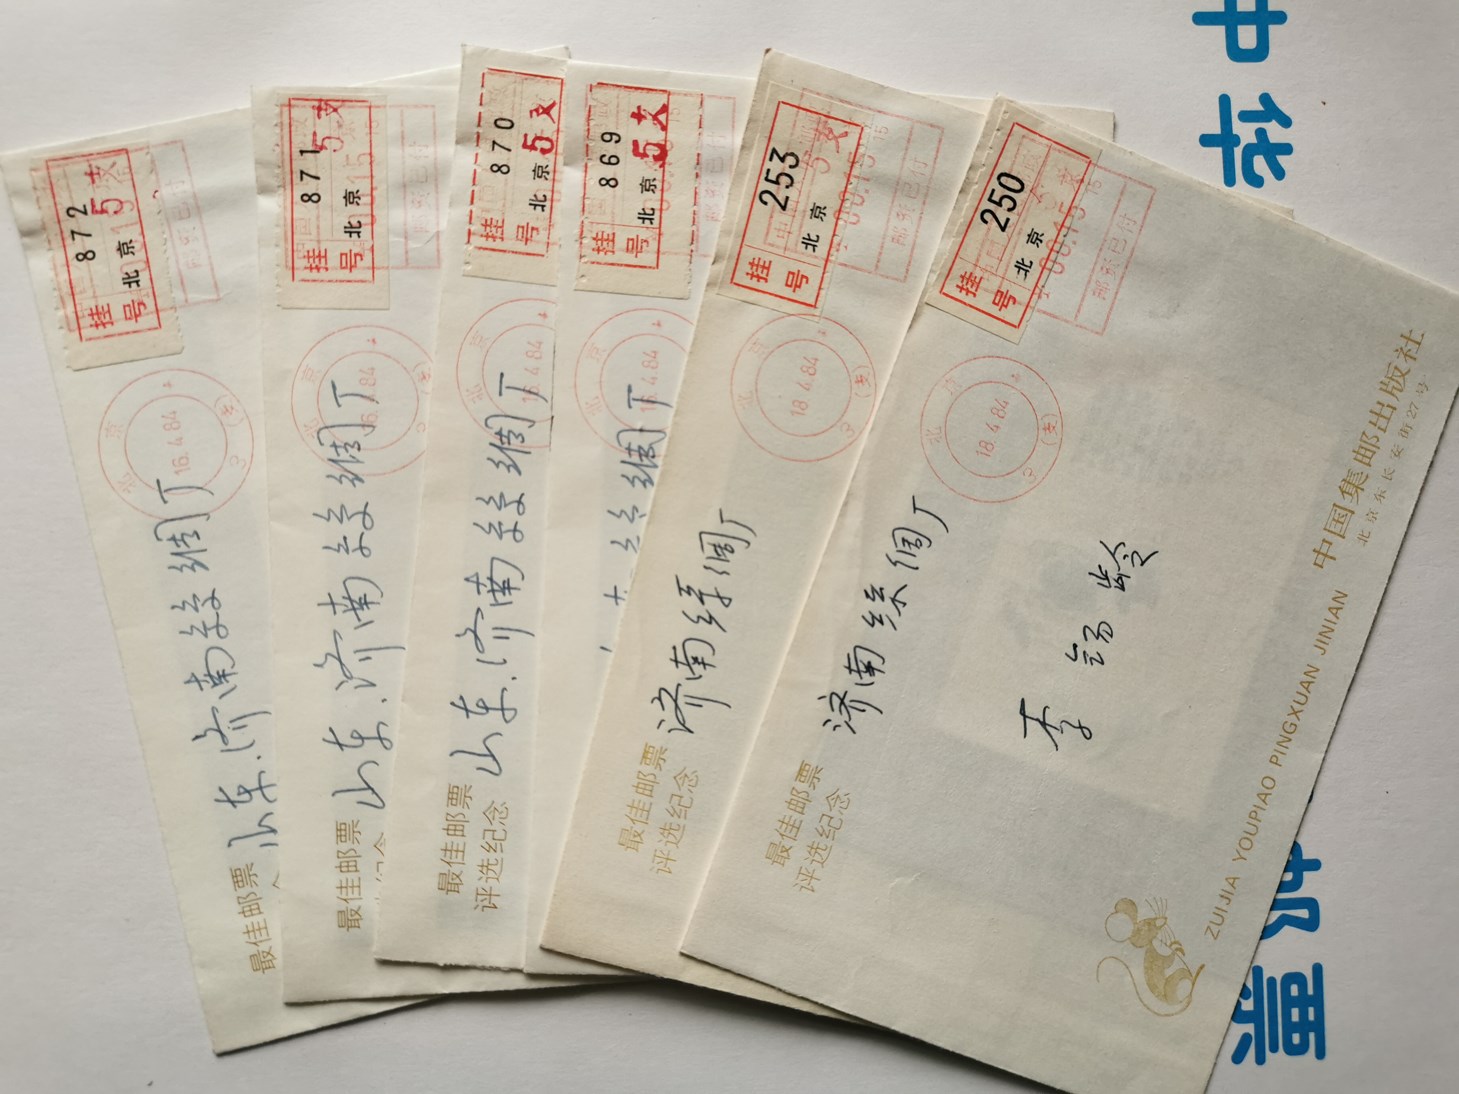 中华
邮票
872
5支
挂号
北京
北京
16.4.84
3(支)
山东.济南丝绸厂
最佳邮票
871
5支
挂号
北京
邮资已付
北京
16.4.84
(支)
山东.济南丝绸厂
最佳邮票
870
5支
挂号
北京
北京
16.4.84
山东.济南丝绸厂
最佳邮票
评选纪念
869
5支
挂号
北京
邮资已付
北京
16.4.84
253
挂号
北京
00.15
邮资已付
北京
18.4.84
3(支)
济南绦绸厂
最佳邮票
评选纪念
250
挂号
北京
00.15
邮资已付
北京
18.4.84
3(支)
济南丝绸厂
李锡龄
最佳邮票
评选纪念
中国集邮出版社
北京东长安街27号
ZUIJIA YOUPIAO PINGXUAN JINIAN